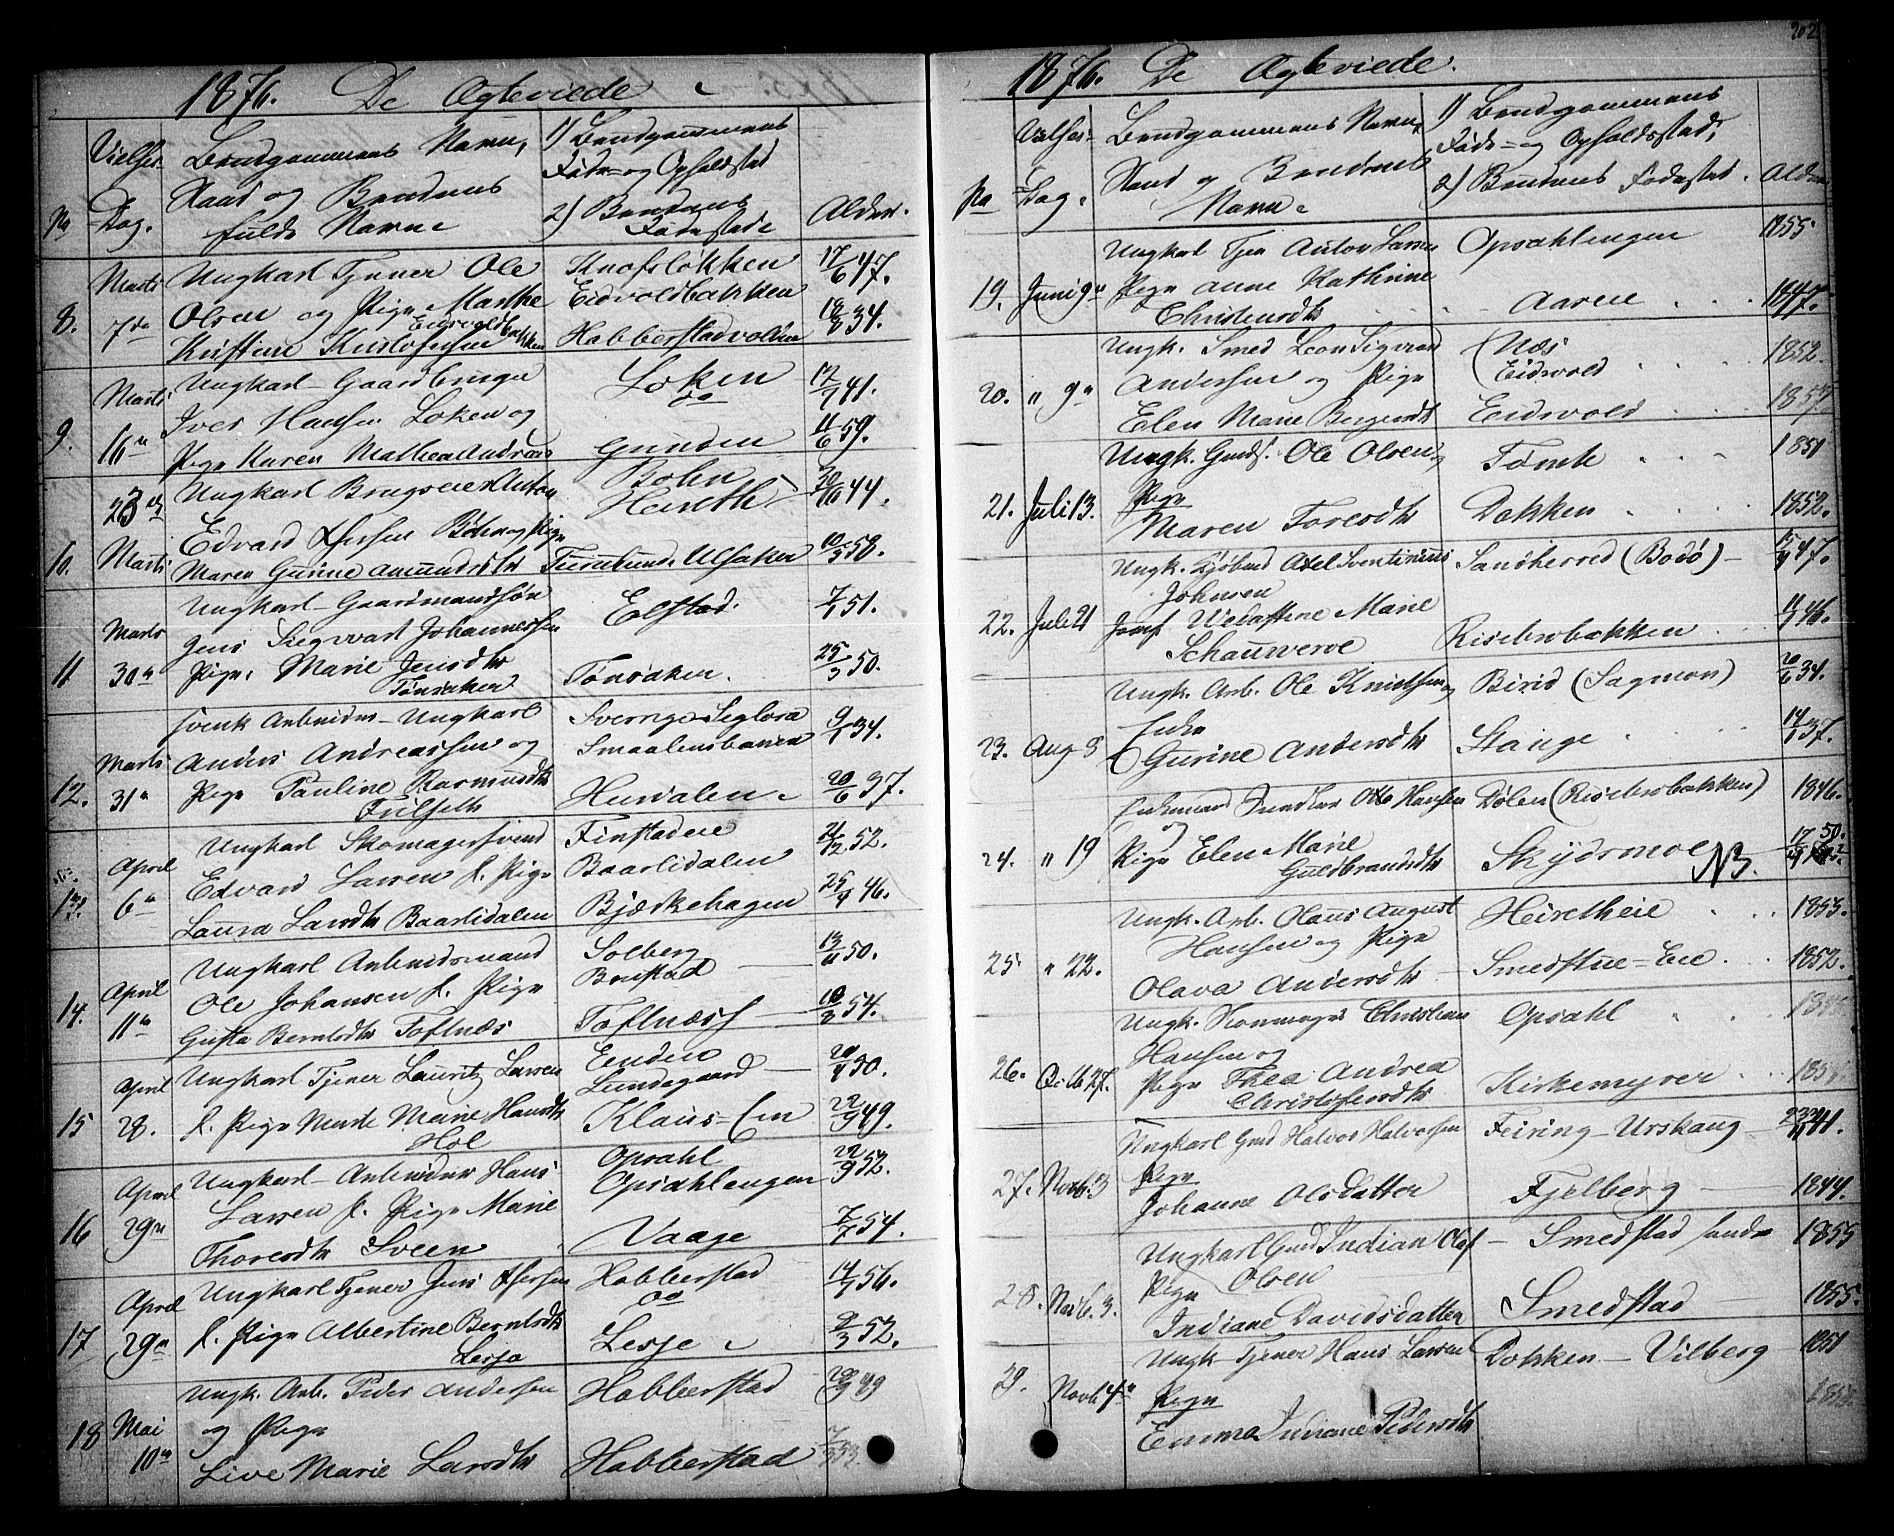 1876. De Ægteviede
No
Vielses-
Dag.
Brudgommens Navn,
Stand og Brudens
fulde Navn
1) Brudgommens
Føde- og Opholdsted
2) Brudens
Fødested
Alder.
8.
Marts
7de
Ungkarl Tjener Ole
Olsen og Pige Marthe
Kristine Kristofersen Eidsvoldbakken
Knofsløkken
Eidvoldbakken
Habberstadvolden
17/6 47.
18/8 34.
9.
Marts
16
Ungkarl Gaardbruger
Iver Hansen Løken og
Pige Karen Mathea
Løken
do
Gunden
12/7 41.
11/6 59.
10.
23
Marts
Ungkarl Brugseier Anton
Edvard Iversen Bøhn og Pige
Maren Gurine Amundsdtr
Bøhn
Ulsaker
44.
10/5 58.
11
Marts
30
Ungkarl Gaardmandssøn
Jens Siegvart Johannessen
Pige Marie Jensdtr
Tønsaker
Eolstad.
Tønsaker.
7/1 51.
25/3 50.
12.
Marts
31
svensk Arbeider Ungkarl
Anders Andreassen og
Pige Pauline Rasmusdtr
Fulseth
Sverrige Seglora
Smaalensbanen
Hurdalen
9/1 34.
20/6 37.
13.
April
6
Ungkarl Skomagersvend
Edvard Larsen f. Pige
Laura Larsdtr Baarlidalen
Finstadeie
Baarlidalen
Bjerkehagen
21/12 52.
25/4 46.
14.
April
11
Ungkarl Arbeidsmand
Ole Johansen f. Pige
Gusta Berntsdtr Toftnæs
Solberg
Bonstad
Toftnæss
13/11 50.
18/3 54.
15
April
28.
Ungkarl Tjener Lauritz Larsen
f. Pige Marte Marie Hansdtr
Hol
Lundsgaard
Klaus-
20/4 50.
22/9 49.
16
April
29
Ungkarl Arbeider Hans
Larsen f. Pige Marie
Thoresdtr Sveen
Opsahl
Opsahlengen
Vaage
22/9 52.
7/7 54.
17
April
29
Ungkarl Tjener Jens Iversen
f. Pige Albertine Berntsdtr
Lesja
Habberstad
do
Lesje
14/7 56.
2/3 52.
18
Mai
10
Ungk. Arb. Peder Andersen
og Pige
Live Marie Larsdtr
Habberstad
Habberstad
1876. De Ægteviede.
No
Vielses-
Dag.
Brudgommens Navn,
Stand og Brudens
Navn.
1) Brudgommens
Føde- og Opholdsted,
2) Brudens Fødested.
Alder
19.
Juni 9
Ungkarl Tjen Anton Larsen
Pige Anne Kathrine
Christensdtr
Opsahlengen
Aarene
1855
1847
20.
" 9
Ungk. Smed Leon Sigvard
Andersen og Pige
Elen Marie Bergersdtr
Næs
Eidsvold
Eidsvold
1852.
1857
21.
Juli 13.
Ungk. Grds. Ole Olsen
Pige
Maren Toresdtr
Tømte
Dokken
1851
1852.
22.
Juli 21
Ungk. Axel Sventinius
Johnsen
Jomf. Wedastine Marie
Sandherred (Bodø)
Risebrobakken
47.
11/3 46.
23.
Aug 8
Ungk. Arb. Ole Knudsen og
Enke
Gurine Andersdtr
Birid (Sagmoen)
Stange
20/6 34.
14/1 37.
24.
" 19
Enkemand Otto Hansen
og
Pige Elen Marie
Guldbrandsdtr
Dølen (Risebrobakken)
Skydsmoe NB.
1846.
25
" 22.
Ungk. Arb. Olaus August
Hansen og Pige
Olava Andersdtr
Heiretheie
Smedstue-Eie
1853.
1852.
26.
Octb 27.
Ungk. Skomager Christian
Hansen og
Pige Thea Andrea
Christofersdtr
Opsahl
Kirkemyrer
27.
Novb. 3
Ungkarl Grd Halvor Halvorsen
Pige
Johanne Olsdatter
Feiring - Urskaug
Fjelberg
41.
1844.
28.
Novb. 3.
Ungkarl Grd Indian Olaf
Olsen
Pige
Indiane Davidsdatter
Smedstad søndre
Smedstad
1855
1855.
29.
Novb 4
Ungk Tjener Hans Larsen
Pige
Emma Indiane Pedersdtr
Dokken - Vilberg
1851